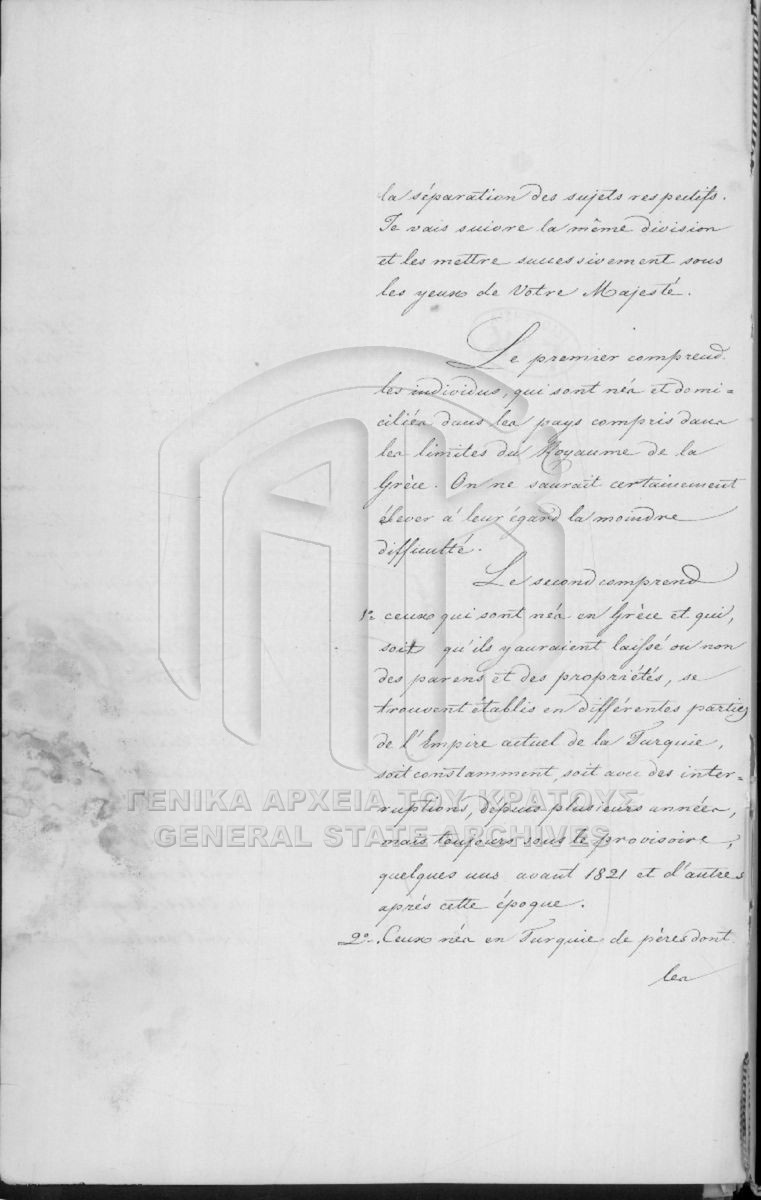 la séparation des sujets respectifs.
Je vais suivre la même division
et les mettre successivement sous
les yeux de Votre Majesté.
Le premier comprend
les individus, qui sont nés et domi=
ciliés dans les pays compris dans
les limites du Royaume de la
Grèce. On ne saurait certainement
élever à leur égard la moindre
difficulté.
Le second comprend
1º ceux qui sont nés en Grèce et qui,
soit qu'ils y auraient laissé ou non
des parens et des propriétés, se
trouvent établis en différentes parties
de l'Empire actuel de la Turquie,
soit constamment, soit avec des inter=
ΓΕΝΙΚΑ ΑΡΧΕΙΑ ΤΟΥ ΚΡΑΤΟΥΣ
ruptions, depuis plusieurs années,
GENERAL STATE ARCHIVES
mais toujours sous le provisoire,
quelques uns avant 1821 et d'autres
après cette époque.
2º. Ceux nés en Turquie de pères dont
les